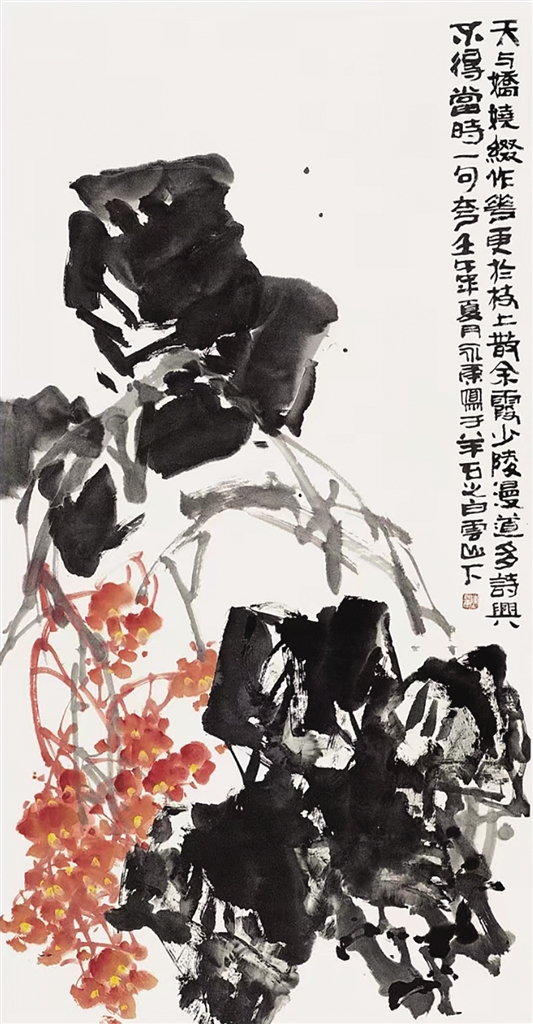 天与嬌嬈綴作華更於枝上散余霞少陵漫道多詩興
不得當時一句夸壬午年夏月永康寫于羊石之白雲山下